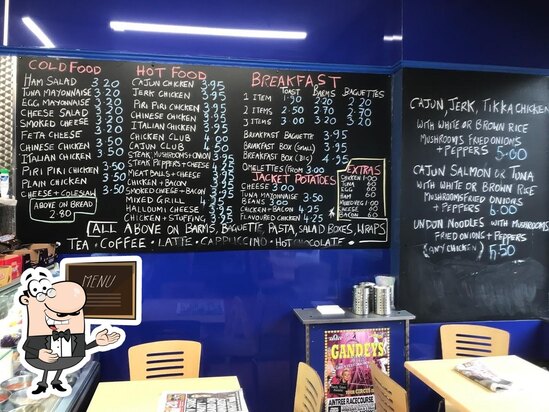 COLD FOOD
HAM SALAD 3.20
TUNA MAYONNAISE 3.20
EGG MAYONNAISE 3.20
CHEESE SALAD 3.20
SMOKED CHEESE 3.20
FETA CHEESE 3.20
CHINESE CHICKEN 3.50
ITALIAN CHICKEN 3.50
PIRI PIRI CHICKEN 3.50
PLAIN CHICKEN 3.50
CHEESE + COLESLAW
ABOVE ON BREAD
2.80
HOT FOOD
CAJUN CHICKEN 3.95
JERK CHICKEN 3.95
PIRI PIRI CHICKEN 3.95
CHINESE CHICKEN 3.95
ITALIAN CHICKEN 3.95
CHICKEN CLUB 4.50
CAJUN CLUB 4.50
STEAK MUSHROOMS + ONION 3.95
STEAK PEPPERS + CHEESE 3.95
MEAT BALLS + CHEESE 3.95
CHICKEN + BACON 3.95
SMOKED CHEESE + BACON 3.95
MIXED GRILL 4.95
HALLOUMI CHEESE 3.95
CHICKEN + STUFFING 3.95
BREAKFAST
TOAST BARMS BAGUETTES
1 ITEM 1.50 2.20 2.20
2 ITEMS 2.50 2.70 2.70
3 ITEMS 3.00 3.20 3.20
BREAKFAST BAGUETTE 3.95
BREAKFAST BOX (SMALL) 3.95
BREAKFAST BOX (BIG) 4.95
OMELETTES (FROM 3.00
JACKET POTATOES
CHEESE 3.00
TUNA MAYONNAISE 3.50
BEANS 3.00
CHICKEN + BACON 4.25
FLAVOURED CHICKEN 4.25
EXTRAS
CHICKEN 1.00
TUNA 60
EGG 60
HAM 60
CHEESE 60
BACON 60
ALL ABOVE ON BARMS, BAGUETTE, PASTA, SALAD BOXES, WRAPS
TEA · COFFEE · LATTE · CAPPUCCINO · HOT CHOCOLATE ·
CAJUN JERK, TIKKA CHICKEN
WITH WHITE OR BROWN RICE
MUSHROOMS FRIED ONIONS
+ PEPPERS 5.00
CAJUN SALMON OR TUNA
WITH WHITE OR BROWN RICE
MUSHROOMS FRIED ONIONS
+ PEPPERS 6.00
UNDON NOODLES WITH MUSHROOMS
FRIED ONIONS + PEPPERS
(ANY CHICKEN) 5.50
MENU
GANDEYS
AINTREE RACECOURSE